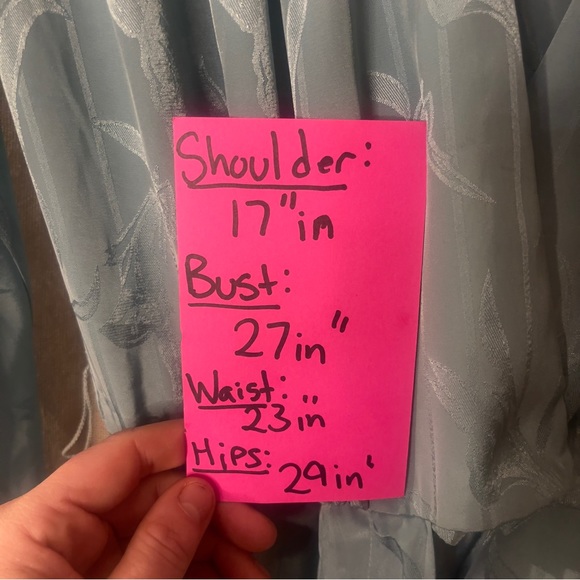 Shoulder:
17"in
Bust:
27in"
Waist:
23in"
Hips:
29in'